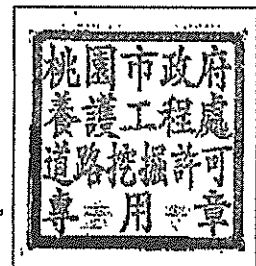 桃園市政府
養護工程處
道路挖掘許可
專用章